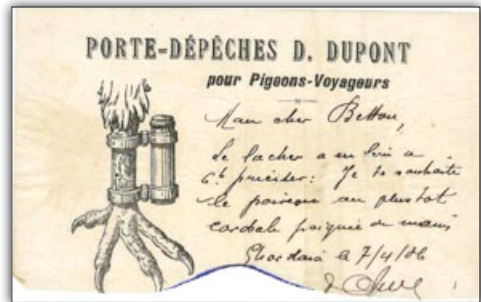 PORTE-DÉPÊCHES D. DUPONT
pour Pigeons-Voyageurs
Mon cher Betton,
Le lacher a eu lieu a
6h précises: Je te souhaite
le au plus tot
cordiale poignée de mains
a 7/4/06